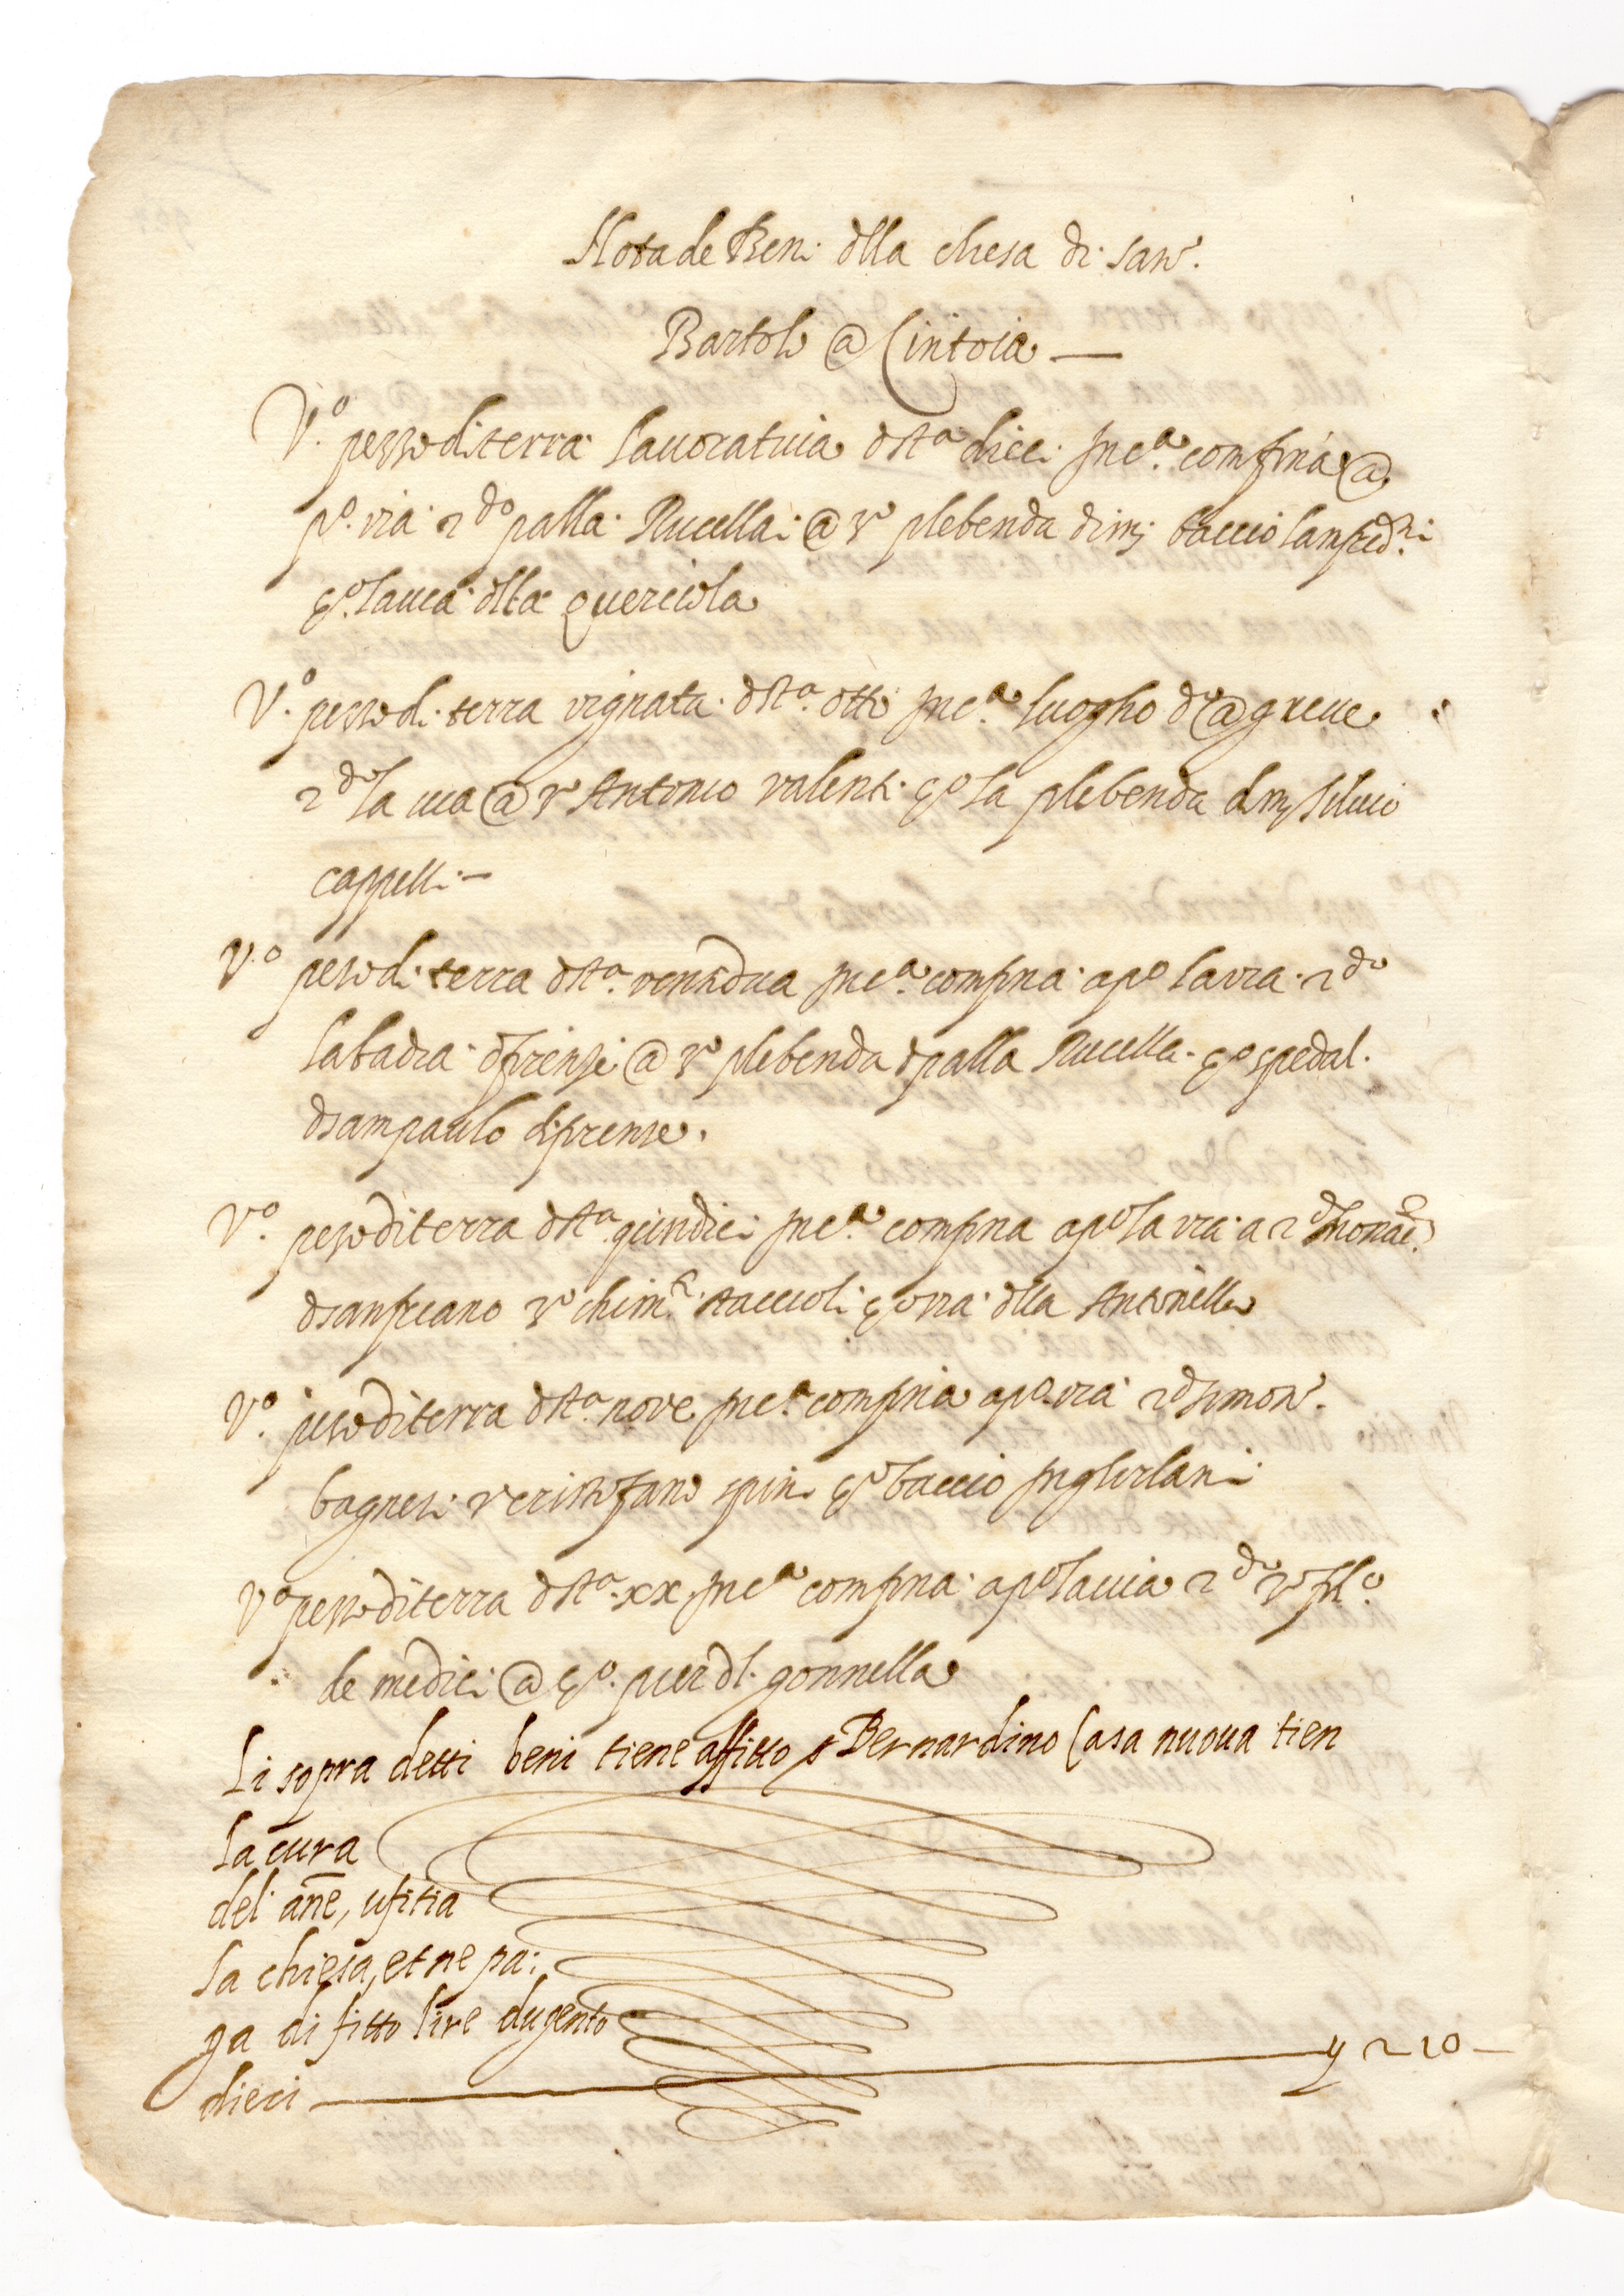 Nota de Beni dlla chiesa di san
Bartolo @ Cintoia —
V.o pezzo di terra lauoratiua d st.a dieci in c.a confina @
p.o via 2do palla Rucellai @ 3o plebenda di m baccio
4o la uia dlla quericiola
V.o pezzo di terra vignata d st.a otto in c.a luogho do @ greue
2do la uia @ 3o Antonio valenti 4o la plebenda d m siluio
cappelli —
V.o pezo di terra d st.a ventidua in c.a confina a po la via 2do
la badia di firenze @ 3o plebenda d palla Rucellai 4o spedal
d sampaulo di firenze.
V.o pezo di terra d st.a quindici in c.a confina a po la via a 2do monac.e
d sanfriano 3o chim.ti Staccioli 4o via dlla Antonella
V.o pezo di terra d st.a nove in c.a confina a po via 2do simon
bagnesi 3o cristofano spini 4o baccio
V.o pezzo di terra d st.a xx in c.a confina a po la uia 2do 3o
de medici @ 4o pier dl gonnella
Li sopra detti beni tiene affitto s Bernardino Casa nuoua tien
la cura
del' ane, ufitia
la chiesa, et ne pa:
ga di fitto lire dugento
dieci — 210 —